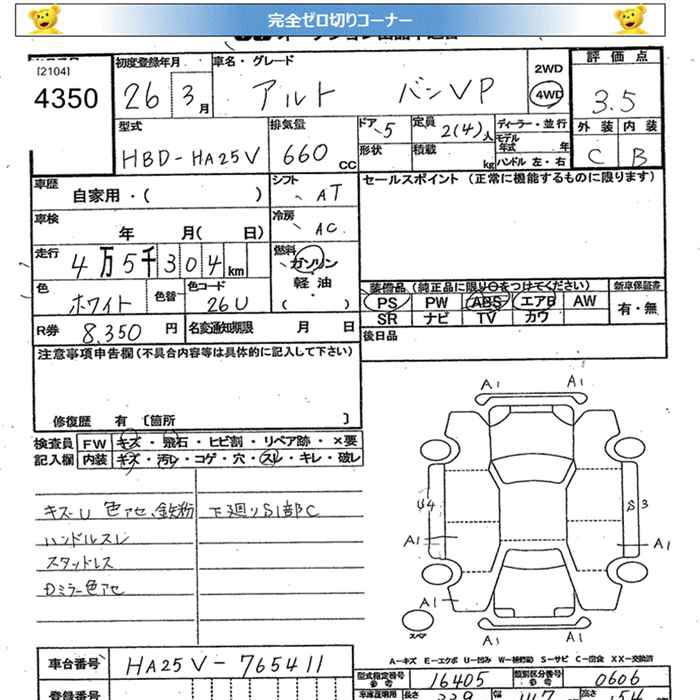 完全ゼロ切りコーナー
[2104]
4350
初度登録年月
26 3月
車名・グレード
アルト バンVP
2WD
4WD
評価点
3.5
外装 内装
C B
型式
HBD-HA25V
排気量
660 CC
ドア 5
形状
定員 2(4)人
積載 kg
ディーラー・並行
モデル年式 年
ハンドル左・右
車歴
自家用・( )
シフト AT
セールスポイント (正常に機能するものに限ります)
車検
年 月( 日)
冷房 AC
走行
4万5千304km
燃料
ガソリン
軽油
( ・ )
色
ホワイト
色替
色コード
26U
装備品(純正品に限り○をつけてください)
PS PW ABS エアB AW
SR ナビ TV カワ
新車保証書
有・無
R券 8,350 円
名変通知期限 月 日
後日品
注意事項申告欄(不具合内容等は具体的に記入して下さい)
修復歴 有 〔箇所 〕
検査員
記入欄
FW キズ・飛石・ヒビ割・リペア跡・×要
内装 キズ・汚レ・コゲ・穴・スレ・キレ・破レ
キズU 色アセ、鉄粉
下廻りS1部C
ハンドルスレ
スタッドレス
Dミラー色アセ
A1 A1
U4 S3
A1 A1
A1 A1
スペア
A1 A1
A-キズ E-エクボ U-凹み W-補修跡 S-サビ C-腐食 XX-交換済
車台番号
HA25V-765411
登録番号
型式指定番号
16405
類別区分番号
0606